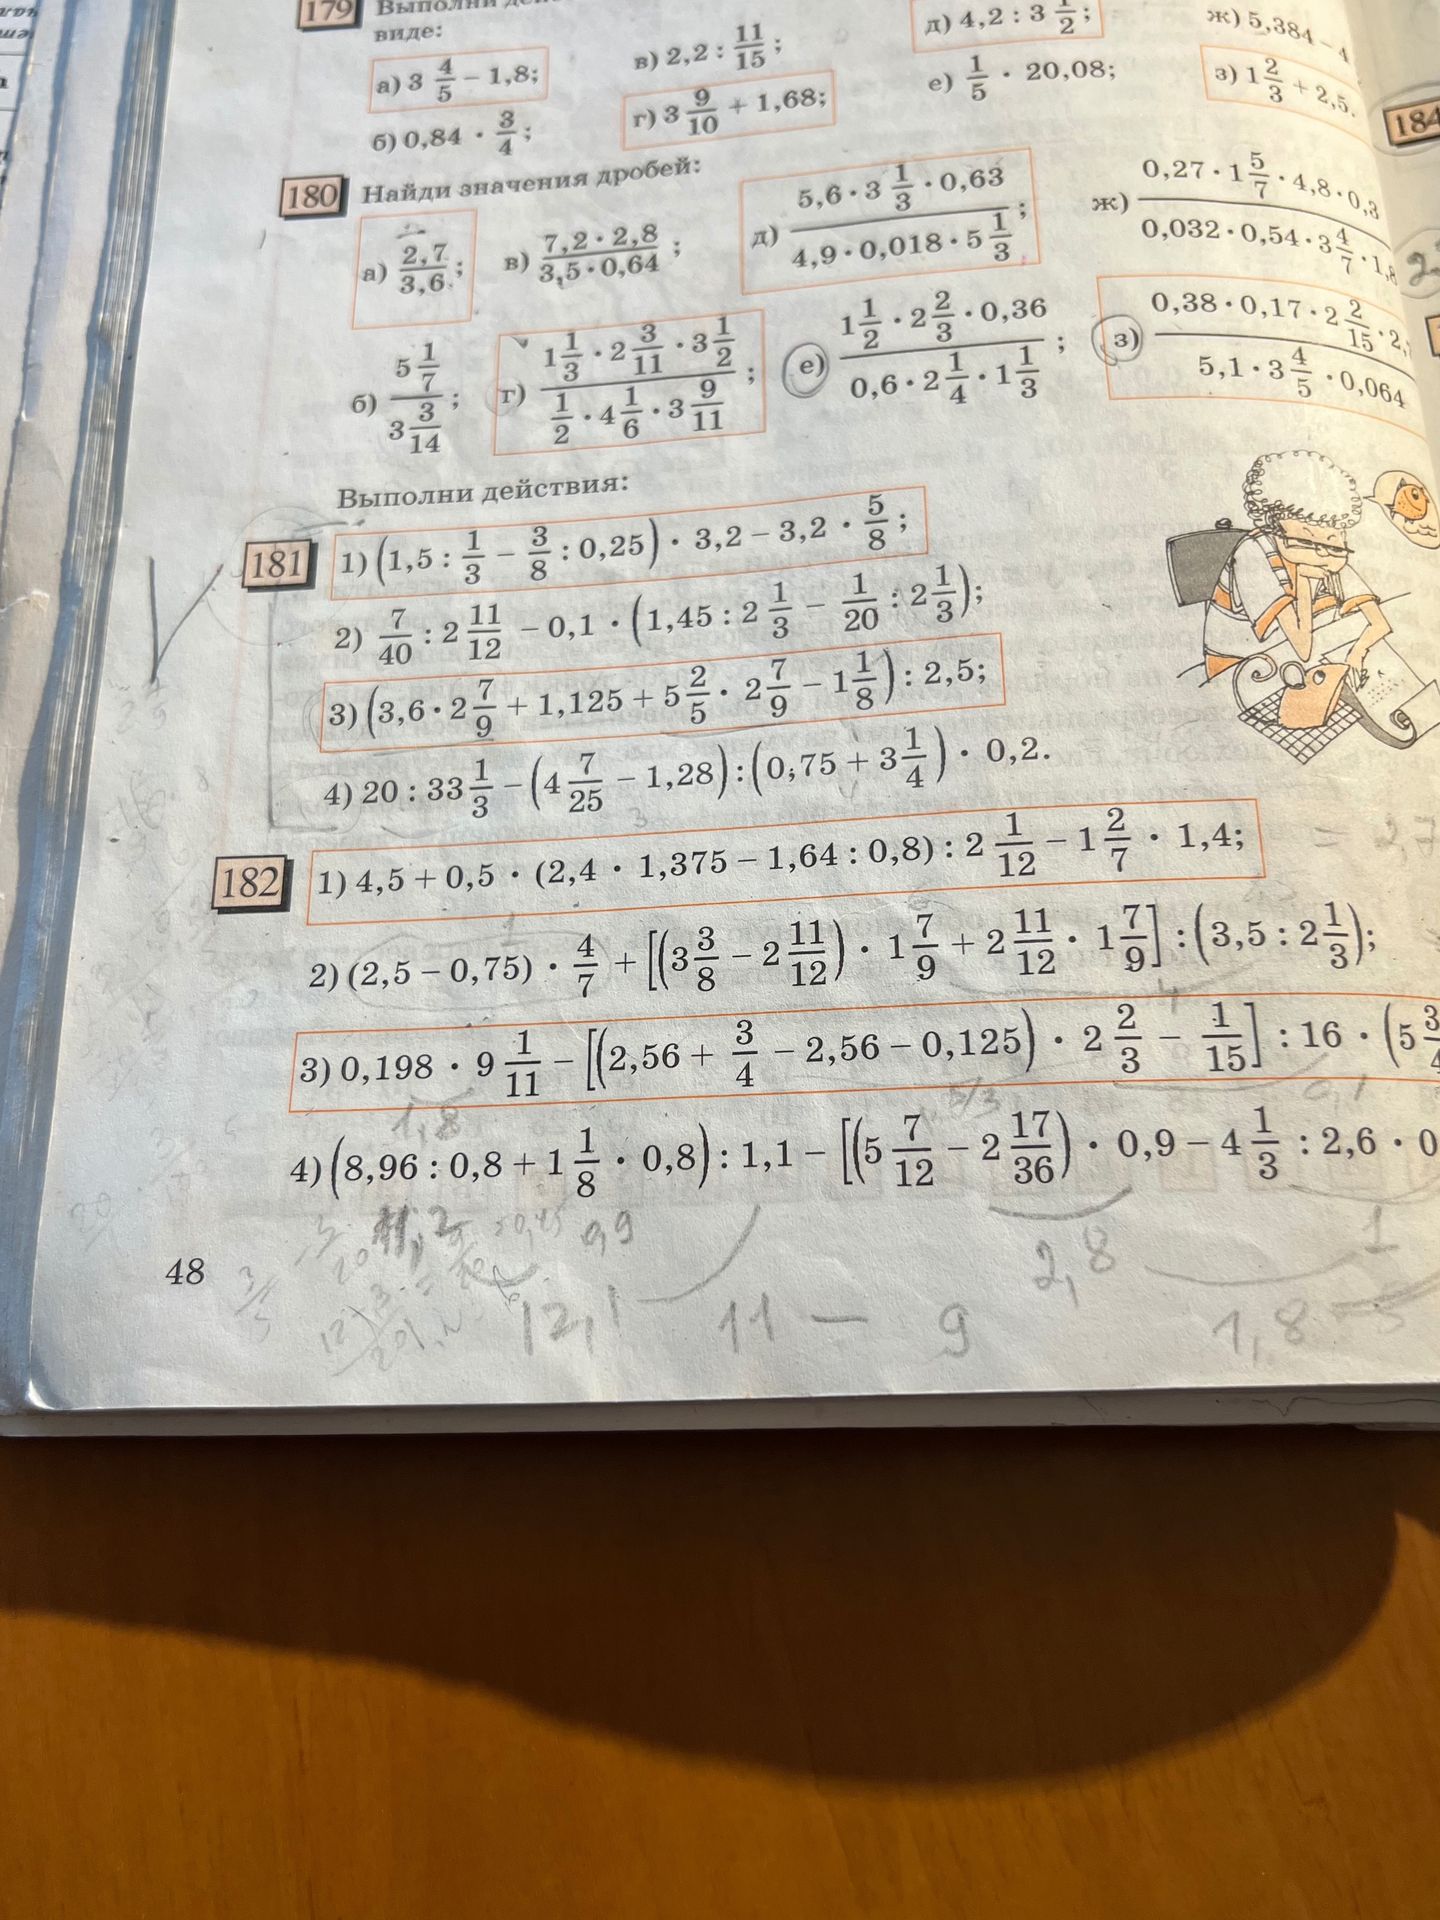 179 Выполни
виде:
а) 3 4/5 − 1,8;
б) 0,84 · 3/4;
в) 2,2 : 11/15;
г) 3 9/10 + 1,68;
д) 4,2 : 3 1/2;
е) 1/5 · 20,08;
ж) 5,384 − 4
з) 1 2/3 + 2,5.
184
180 Найди значения дробей:
а) 2,7/3,6;
в) 7,2 · 2,8 / 3,5 · 0,64;
д) 5,6 · 3 1/3 · 0,63 / 4,9 · 0,018 · 5 1/3;
ж) 0,27 · 1 5/7 · 4,8 · 0,3 / 0,032 · 0,54 · 3 4/7 · 1,8
б) 5 1/7 / 3 3/14;
г) 1 1/3 · 2 3/11 · 3 1/2 / 1/2 · 4 1/6 · 3 9/11;
е) 1 1/2 · 2 2/3 · 0,36 / 0,6 · 2 1/4 · 1 1/3;
з) 0,38 · 0,17 · 2 2/15 · 2, / 5,1 · 3 4/5 · 0,064
Выполни действия:
181 1) (1,5 : 1/3 − 3/8 : 0,25) · 3,2 − 3,2 · 5/8;
2) 7/40 : 2 11/12 − 0,1 · (1,45 : 2 1/3 − 1/20 : 2 1/3);
3) (3,6 · 2 7/9 + 1,125 + 5 2/5 · 2 7/9 − 1 1/8) : 2,5;
4) 20 : 33 1/3 − (4 7/25 − 1,28) : (0,75 + 3 1/4) · 0,2.
182 1) 4,5 + 0,5 · (2,4 · 1,375 − 1,64 : 0,8) : 2 1/12 − 1 2/7 · 1,4;
= 2,7
2) (2,5 − 0,75) · 4/7 + [(3 3/8 − 2 11/12) · 1 7/9 + 2 11/12 · 1 7/9] : (3,5 : 2 1/3);
3) 0,198 · 9 1/11 − [(2,56 + 3/4 − 2,56 − 0,125) · 2 2/3 − 1/15] : 16 · (5 3/4
1,8 5/3 0,1
4) (8,96 : 0,8 + 1 1/8 · 0,8) : 1,1 − [(5 7/12 − 2 17/36) · 0,9 − 4 1/3 : 2,6 · 0
11,2 0,9 2,8 1
12,1 11 − 9 1,8
48